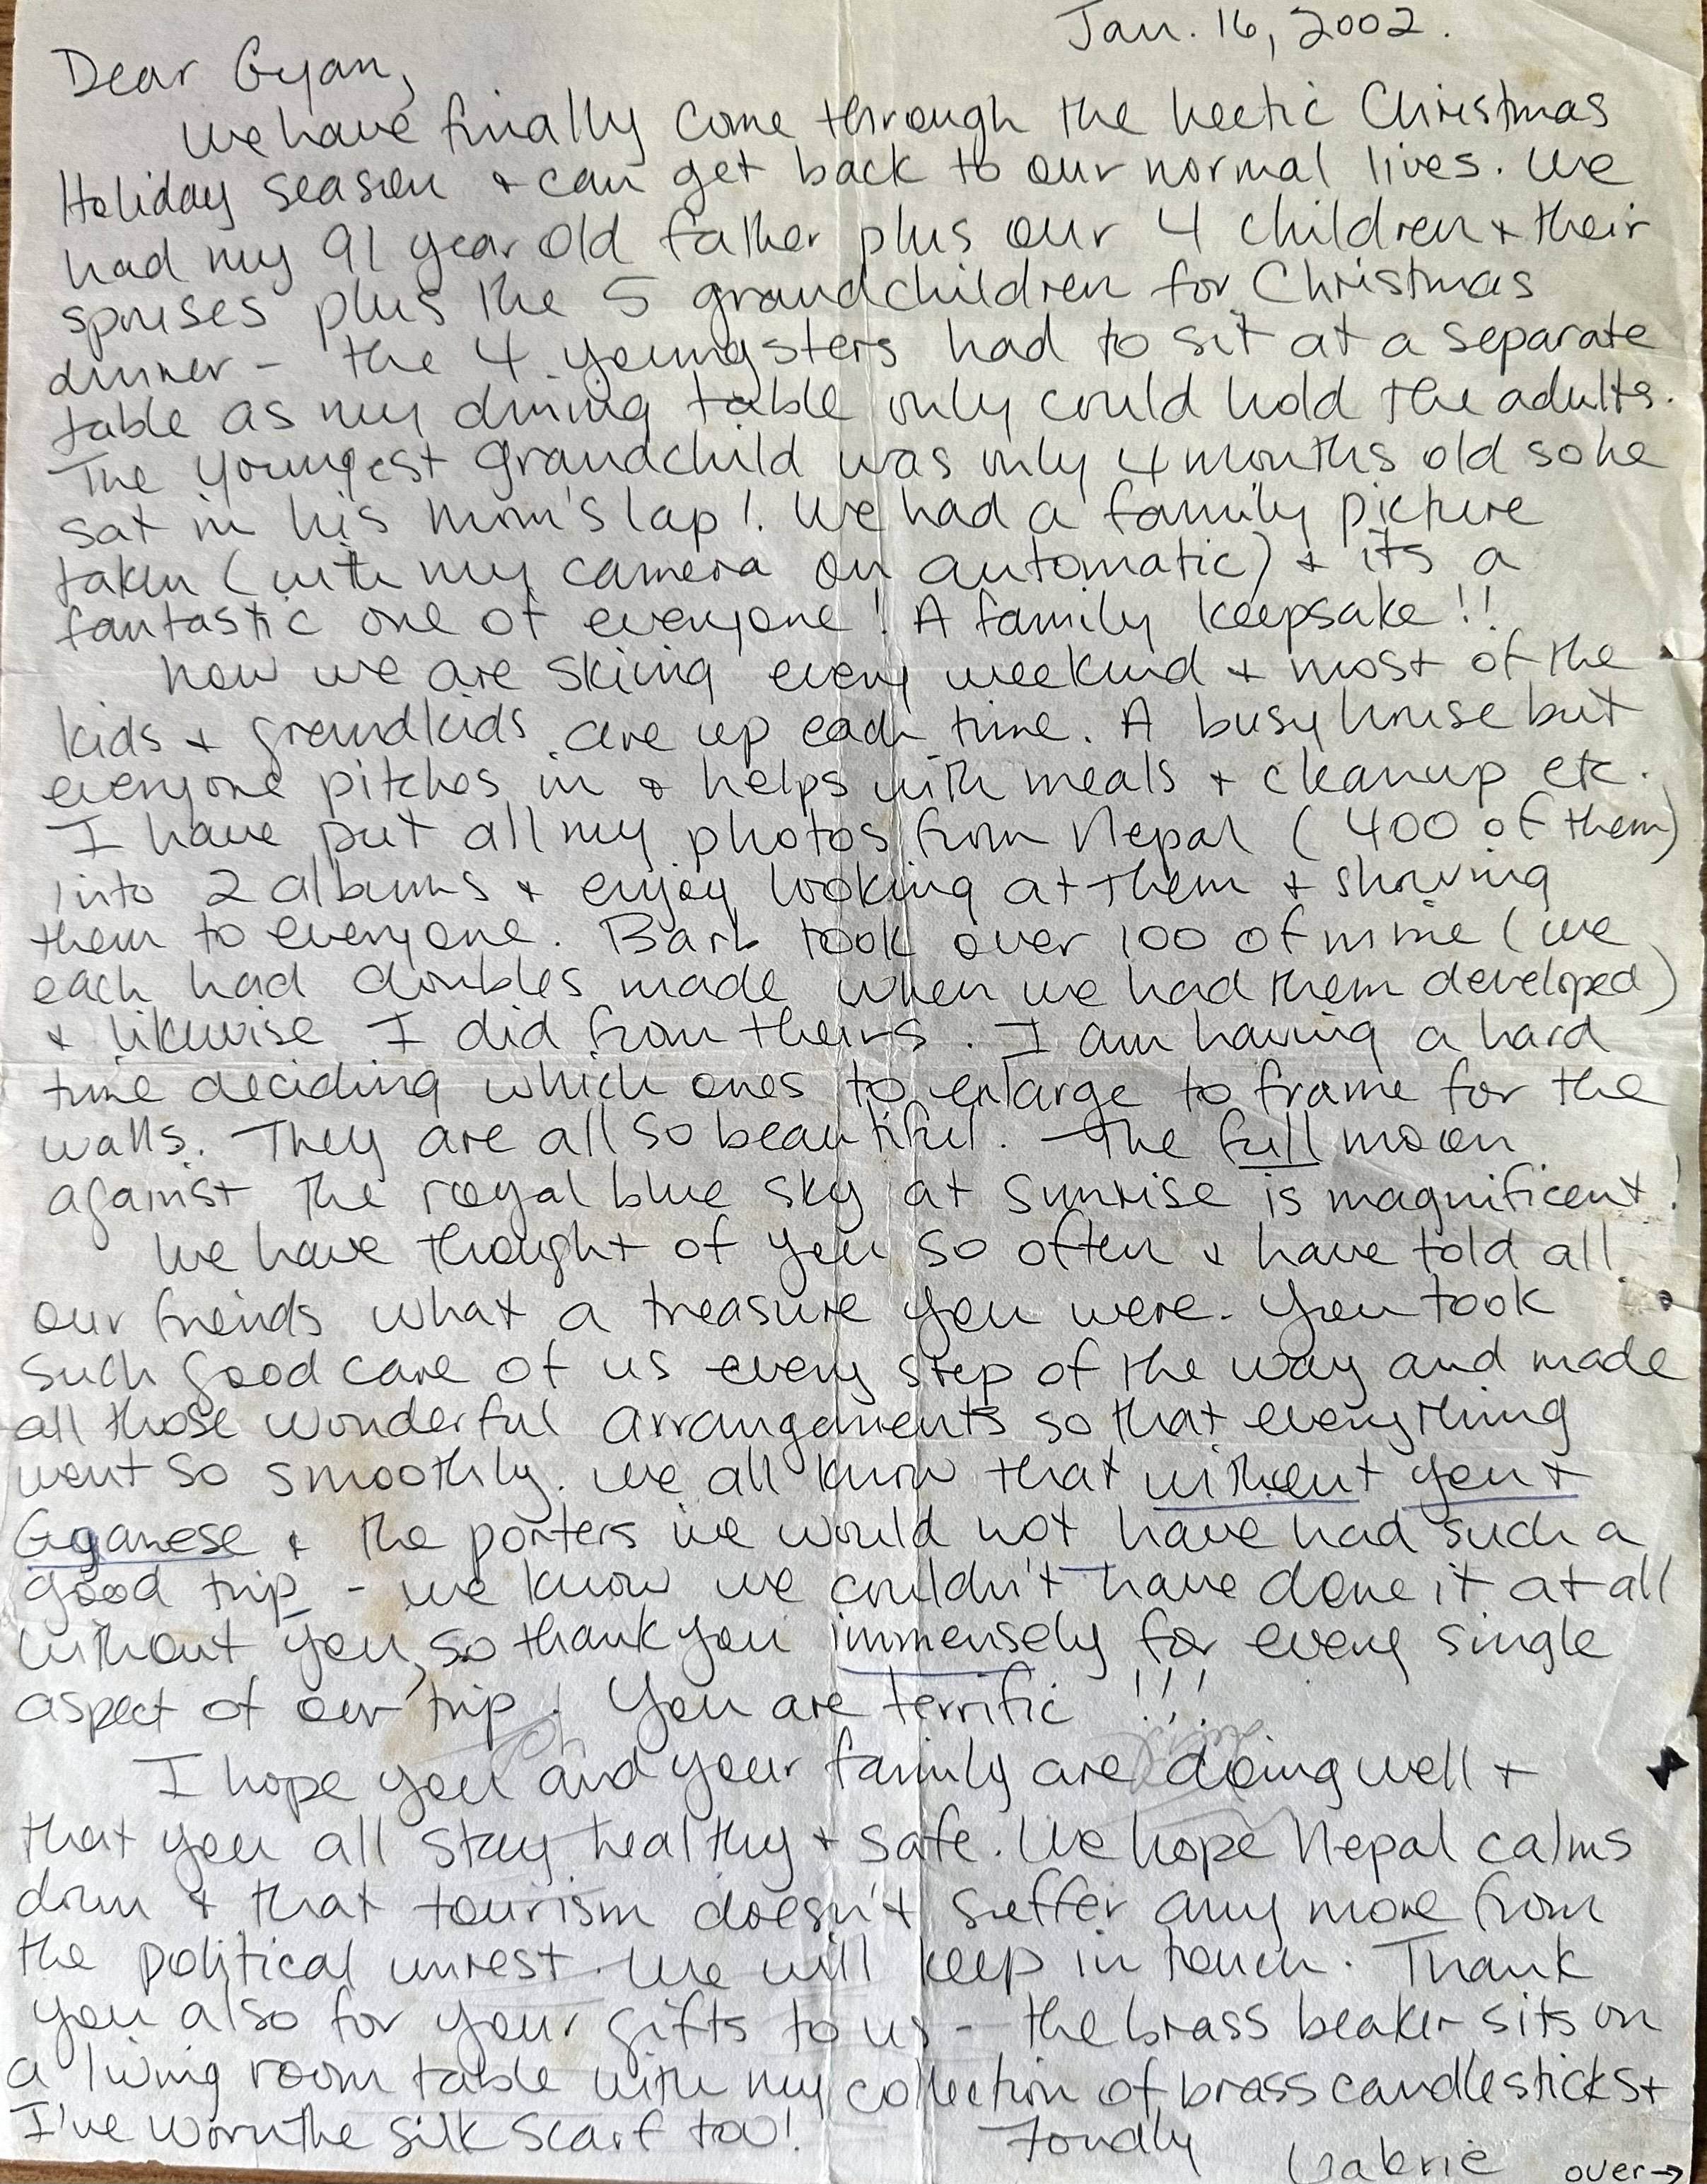 Jan. 16, 2002.
Dear Gyan,
We have finally come through the hectic Christmas
Holiday season + can get back to our normal lives. We
had my 91 year old father plus our 4 children + their
spouses plus the 5 grandchildren for Christmas
dinner - the 4 youngsters had to sit at a separate
table as my dining table only could hold the adults.
The youngest grandchild was only 4 months old so he
sat in his mom's lap! We had a family picture
taken (with my camera on automatic) + its a
fantastic one of everyone! A family keepsake!!
Now we are skiing every weekend + most of the
kids + grandkids are up each time. A busy house but
everyone pitches in + helps with meals + cleanup etc.
I have put all my photos from Nepal (400 of them)
into 2 albums + enjoy looking at them + showing
them to everyone. Barb took over 100 of mine (we
each had doubles made when we had them developed)
+ likewise I did from theirs. I am having a hard
time deciding which ones to enlarge to frame for the
walls. They are all so beautiful. The full moon
against the royal blue sky at sunrise is magnificent!
We have thought of you so often + have told all
our friends what a treasure you were. You took
such good care of us every step of the way and made
all those wonderful arrangements so that everything
went so smoothly. We all know that without you +
Gyanese + the porters we would not have had such a
good trip - we know we couldn't have done it at all
without you, so thank you immensely for every single
aspect of our trip! You are terrific!!!
I hope you and your family are doing well +
that you all stay healthy + safe. We hope Nepal calms
down + that tourism doesn't suffer any more from
the political unrest. We will keep in touch. Thank
you also for your gifts to us - the brass beaker sits on
a living room table with my collection of brass candlesticks +
I've worn the silk scarf too! Fondly
Gabrie over →